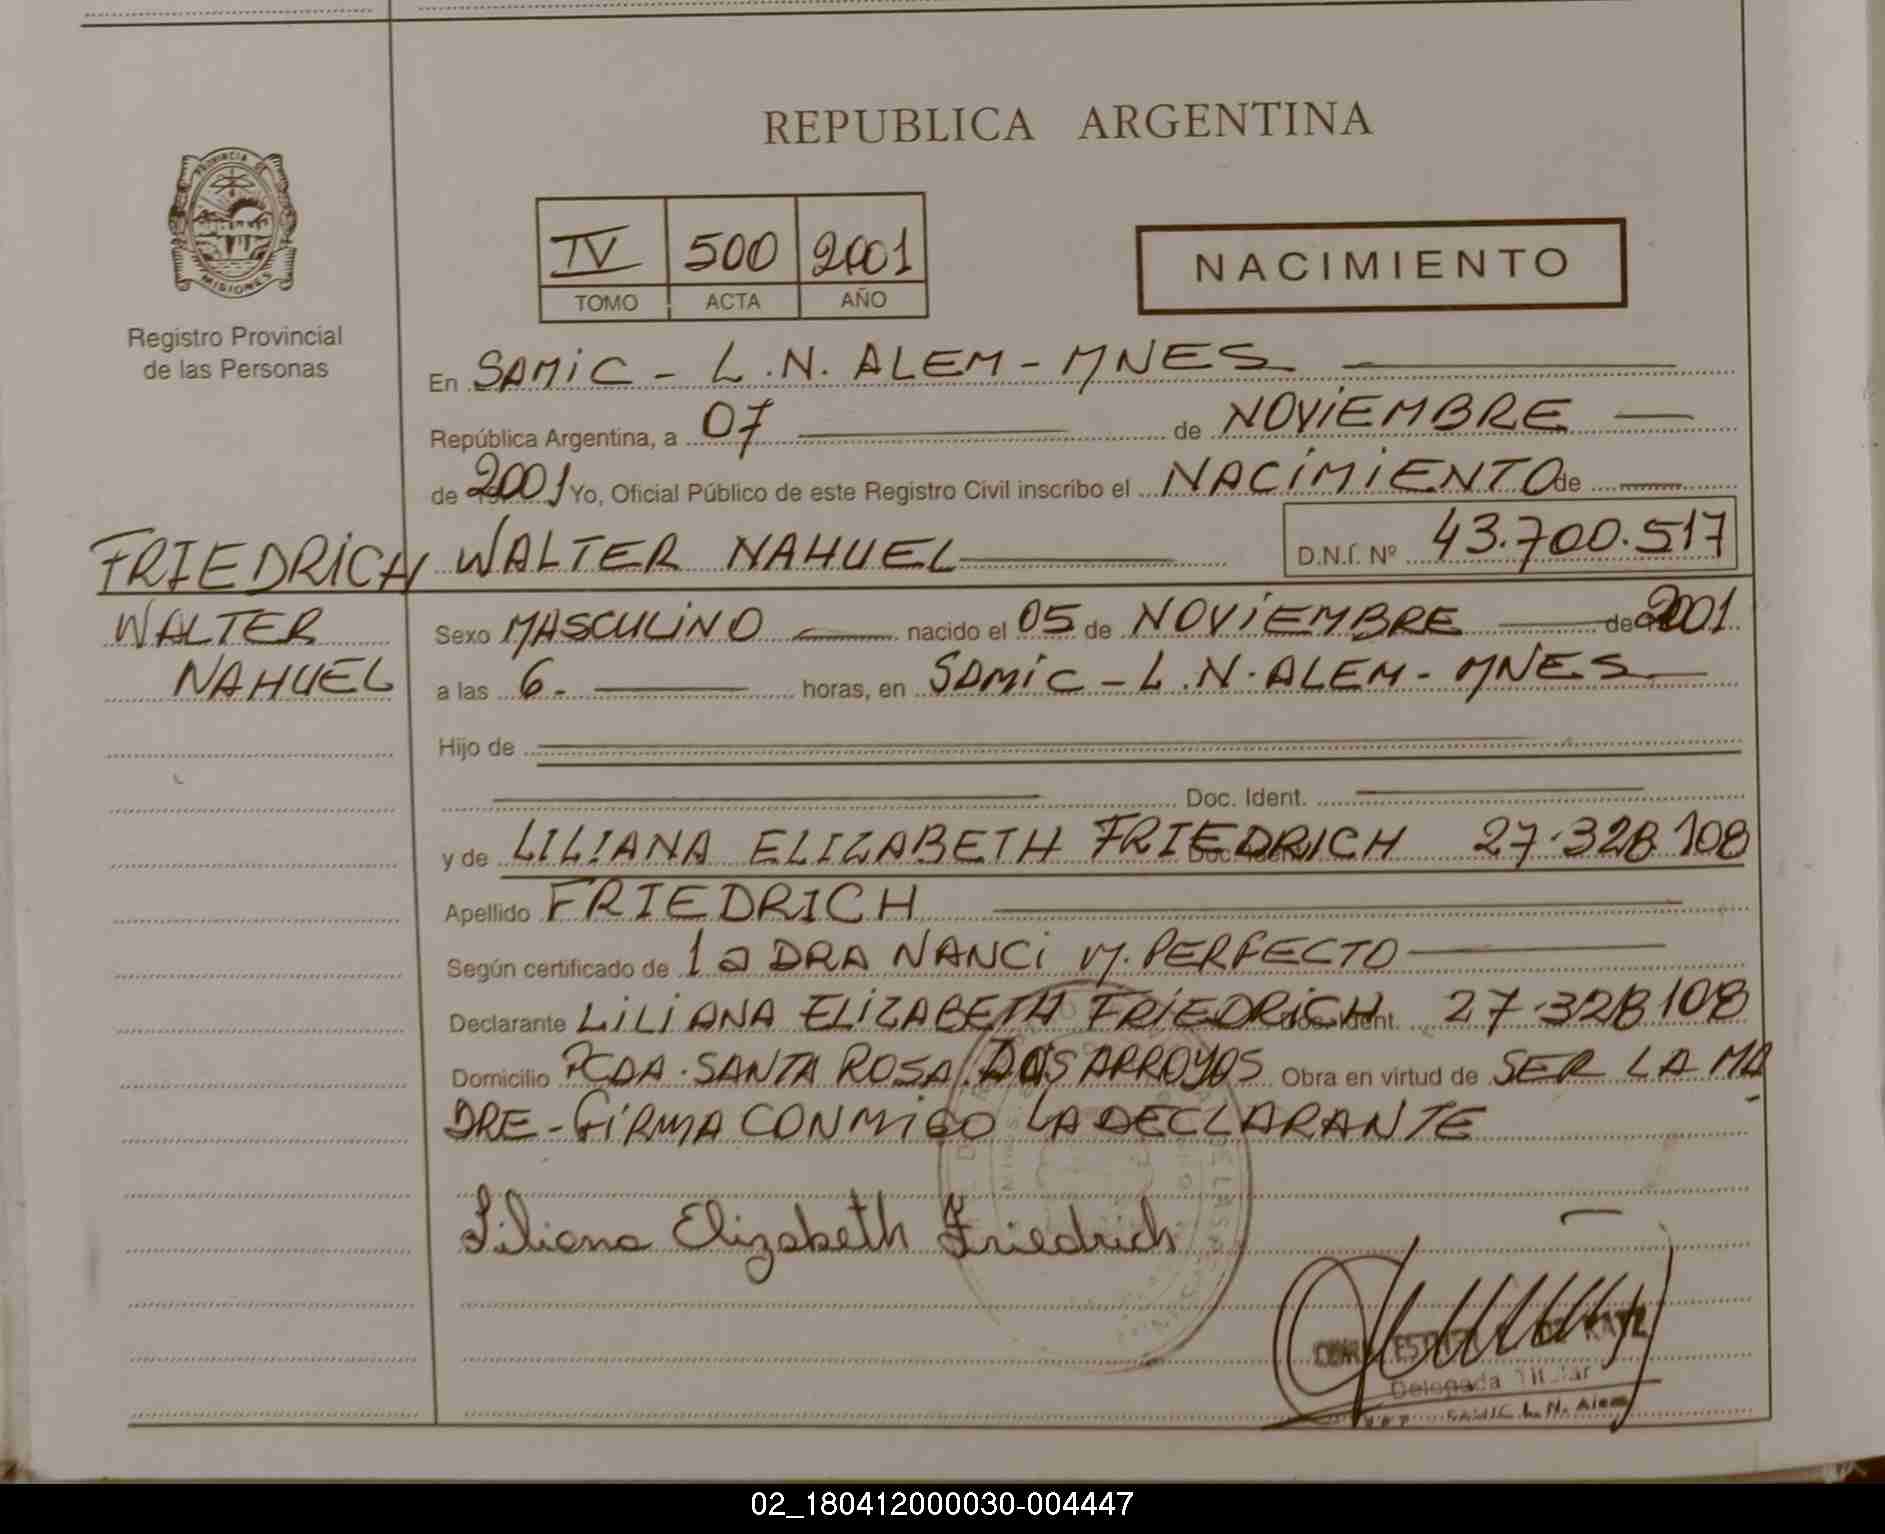 REPUBLICA ARGENTINA
PROVINCIA DE
MISIONES
Registro Provincial
de las Personas
IV 500 2001
TOMO ACTA AÑO
NACIMIENTO
En SAMIC - L.N. ALEM - MNES
República Argentina, a 07 de NOVIEMBRE
de 2001 Yo, Oficial Público de este Registro Civil inscribo el NACIMIENTO de
FRIEDRICH WALTER NAHUEL D.N.I. Nº 43.700.517
WALTER
NAHUEL
Sexo MASCULINO nacido el 05 de NOVIEMBRE de 2001
a las 6.- horas, en SAMIC - L.N. ALEM - MNES
Hijo de
Doc. Ident.
y de LILIANA ELIZABETH FRIEDRICH 27.328 108
Apellido FRIEDRICH
Según certificado de 1 a DRA NANCI M. PERFECTO
Declarante LILIANA ELIZABETH FRIEDRICH Doc. Ident. 27.328 108
Domicilio PCDA. SANTA ROSA. DOS ARROYOS Obra en virtud de SER LA MA
DRE - FIRMA CONMIGO LA DECLARANTE
Liliana Elizabeth Friedrich
DE KATZ
Delegada Titular
SAMIC L. N. Alem
02_180412000030-004447